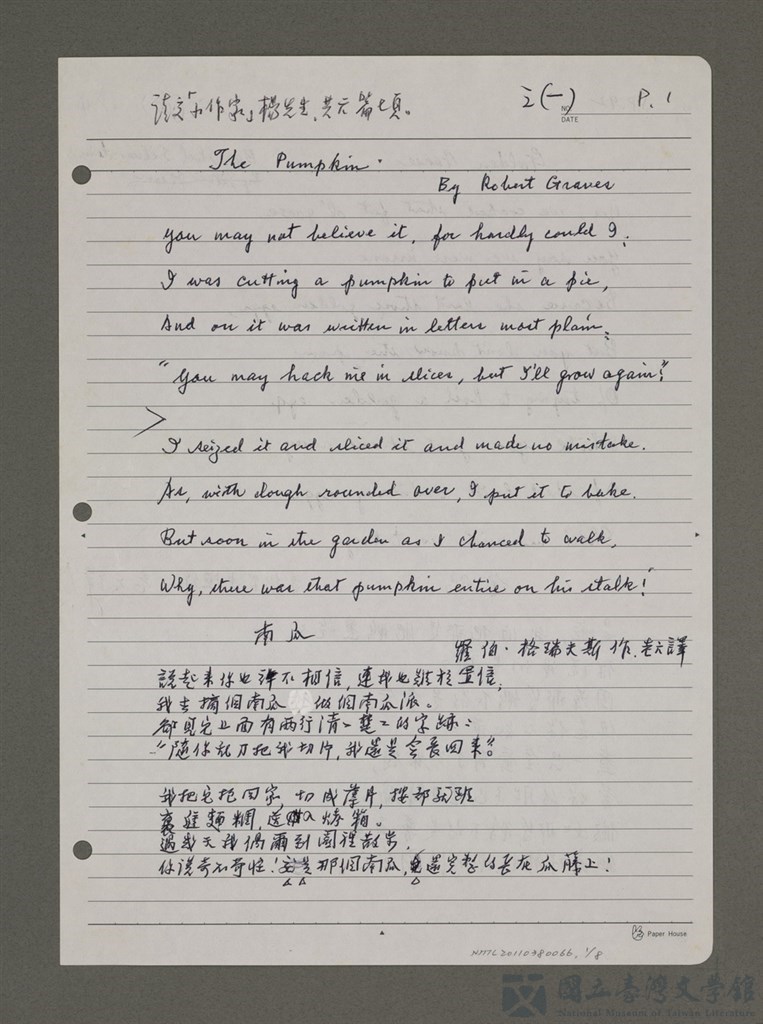 請交「小作家」楊先生,共六篇七頁。
之(一) P. 1
NO.
DATE
The Pumpkin.
By Robert Graves
You may not believe it, for hardly could I;
I was cutting a pumpkin to put in a pie,
And on it was written in letters most plain;
"You may hack me in slices, but I'll grow again!"
I seized it and sliced it and made no mistake.
As, with dough rounded over, I put it to bake.
But soon in the garden as I chanced to walk,
Why, there was that pumpkin entire on his stalk!
南瓜
羅伯·格瑞夫斯 作.
說起來你也許不相信,連我也難於置信;
我去摘個南瓜 做個南瓜派。
卻見它上面有兩行清清楚楚的字跡:
"隨你亂刀把我切片,我還是會長回來"。
我把它抱回家,切成薄片,按部就班
裹進麵糊,送入烤箱。
過幾天我偶爾到園裡散步,
你說奇不奇怪!那個南瓜,還完整的長在瓜藤上!
Paper House
NMTL20110380066, 1/8
國立臺灣文學館
National Museum of Taiwan Literature